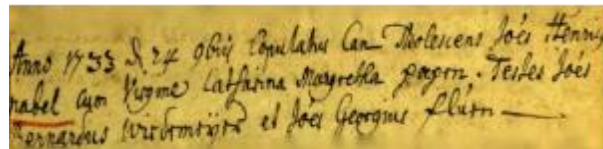 Anno 1733 d. 24 obijs Copulatus Can Adolescens Joës Henric
nabel cum Virgine Catharina Margretha pagen. Testes Joës
Bernardus et Joës Georgius